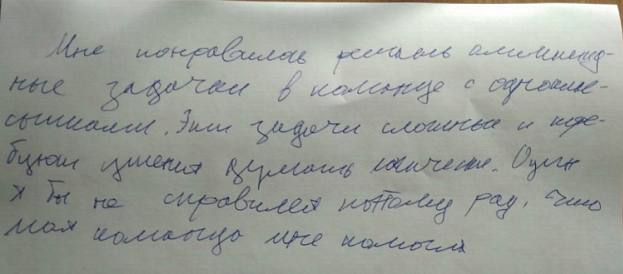 Мне понравилось решать олимпиад-
ные задачи в команде с однокла-
сниками. Эти задачи сложные и тре-
буют умения думать логически. Один
я бы не справился поэтому рад, что
моя команда мне помогла